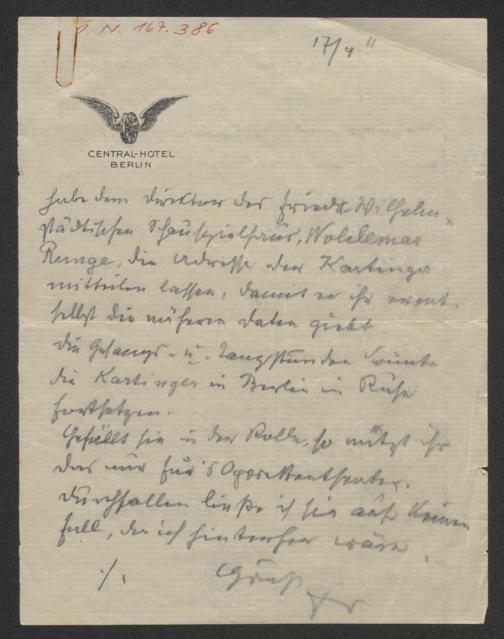 I. N. 167.386
17/4 11
CENTRAL-HOTEL
BERLIN
habe dem Direktor des Friedr.-Wilhelm-
städtischen Schauspielhaus, Woldemar
Runge, die Adresse der Kartinger
mitteilen lassen, damit er ihr event.
selbst die näheren Daten giebt.
Die Gesangs- u. Tanzstunden könnte
die Kartinger in Berlin in Ruhe
fortsetzen.
Gefällt sie in der Rolle, so nützt ihr
das nur für's Operettentheater.
Durchfallen ließe ich sie auf keinen
Fall, da ich hinterher wäre.
./.
Gruß